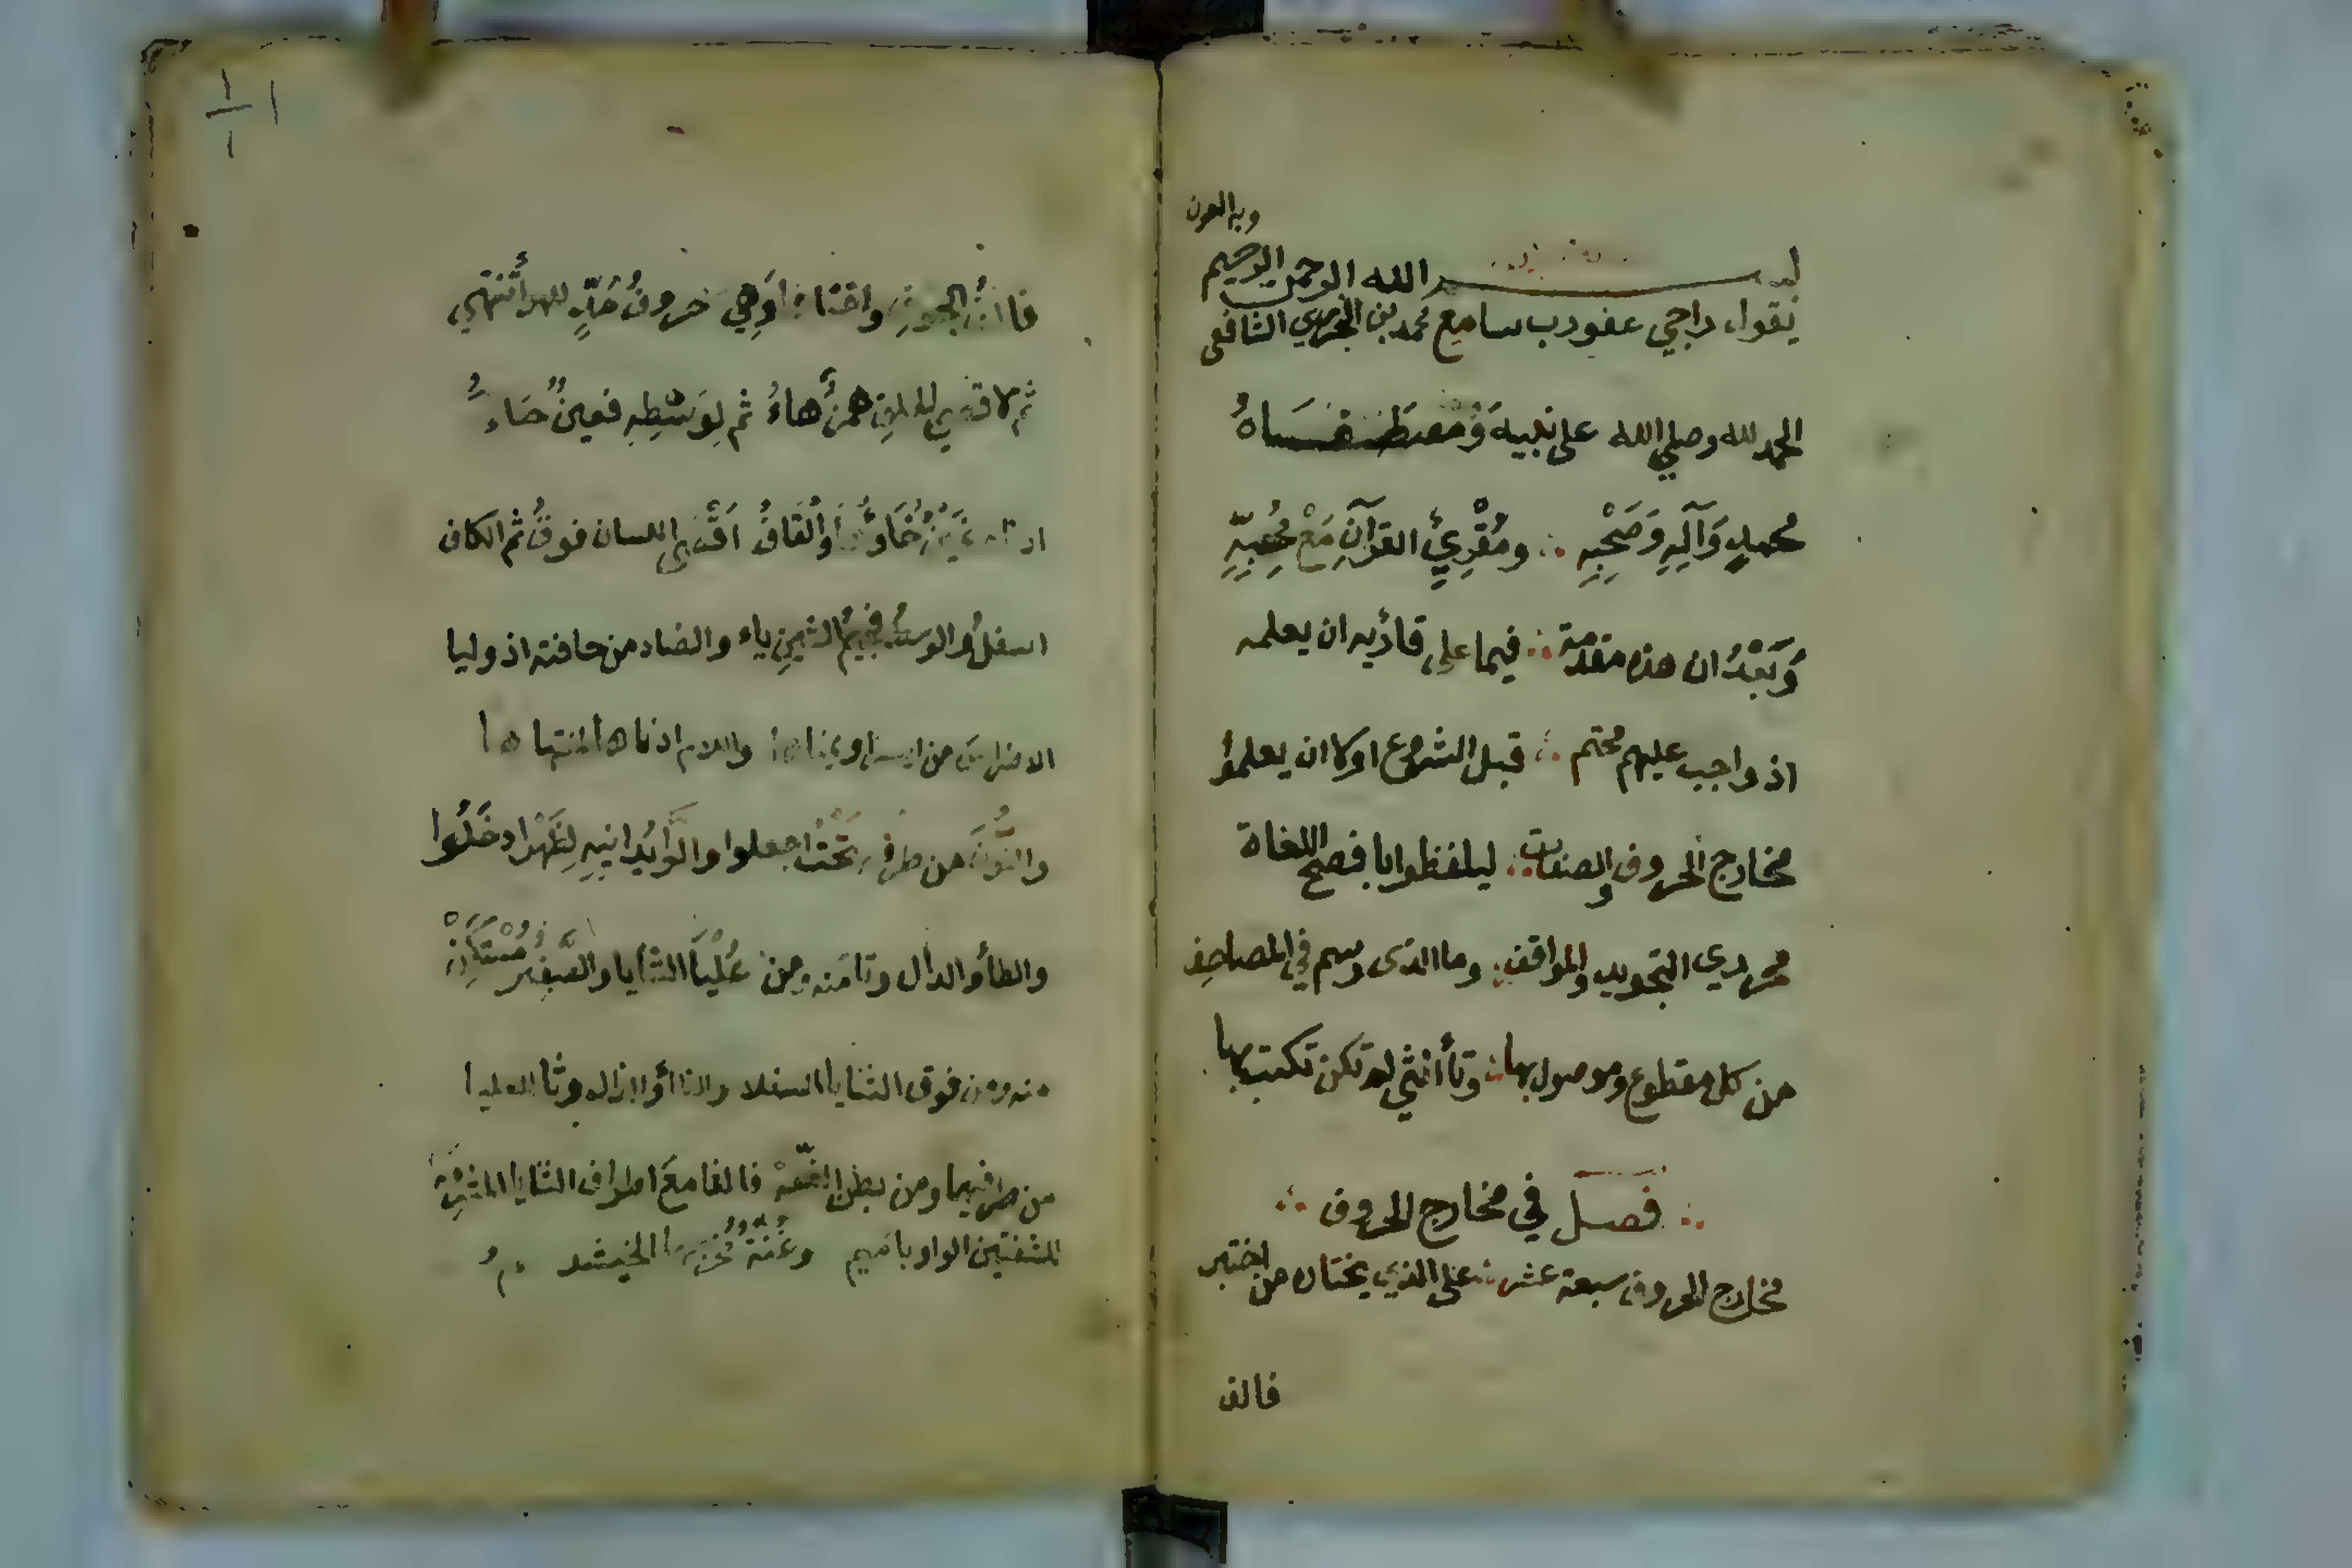 وبه العون
بسم الله الرحمن الرحيم
يقول راجي عفو رب سامع محمد بن الجزري الشافعي
الحمد لله وصلي الله على نبيه وَمُصطفاهُ
محمدٍ وَآلِهِ وَصَحْبِهِ ∴ ومُقْرِئِ القرآنِ مَعْ مُحِبِّهِ
وَبَعْدُ ان هذه مقدمة ∴ فيما على قارئه ان يعلمه
اذ واجب عليهم محتم ∴ قبل الشروع اولا ان يعلموا
مخارج الحروف والصفات ∴ ليلفظوا بافصح اللغاة
محرري التجويد والمواقف ∴ وما الذى رسم في المصاحف
من كل مقطوع وموصول بها ∴ وتأ أنثي لم تكن تكتب بها
∴ فَصَل في مخارج الحروف ∴
مخارج الحروف سبعة عشر ∴ على الذي يختاره من اختبر
فالف
١
١ ١
فالفُ الجوفِ واختاها وَهِيَ حروفُ مَدٍّ للهوا تنتهي
ثم لاقصي الحلق همزٌ هاءُ ثم لِوَسْطِهِ فعينٌ حاءُ
ادناه غَيْنٌ خَاؤُهَا وَالْقَافُ اَقْصَى اللسان فوقُ ثم الكاف
اسفلُ والوسطُ فجيمُ الشينِ ياء والضاد من حافته اذ وليا
الاضراس من ايسر او يمناها واللام ادناها لمنتهاها
والنُّونُ من طرفه تَحْتُ اجعلوا والرَّا يُدانيهِ لِظَهْرٍ ادخَلُوا
والطأ والدال وتا منه ومن عُلْيَا الثنايا والصَّفِيرُ مُسْتَكِنْ
منه ومن فوق الثنايا السفلا والظا والذال وثا للعليا
من طرفيهما ومن بطن الشفه فالفا مع اطراف الثنايا المشرفة
للشفتين الواو با ميم وغُنَّةٌ مَخْرَجُهَا الخيشوم